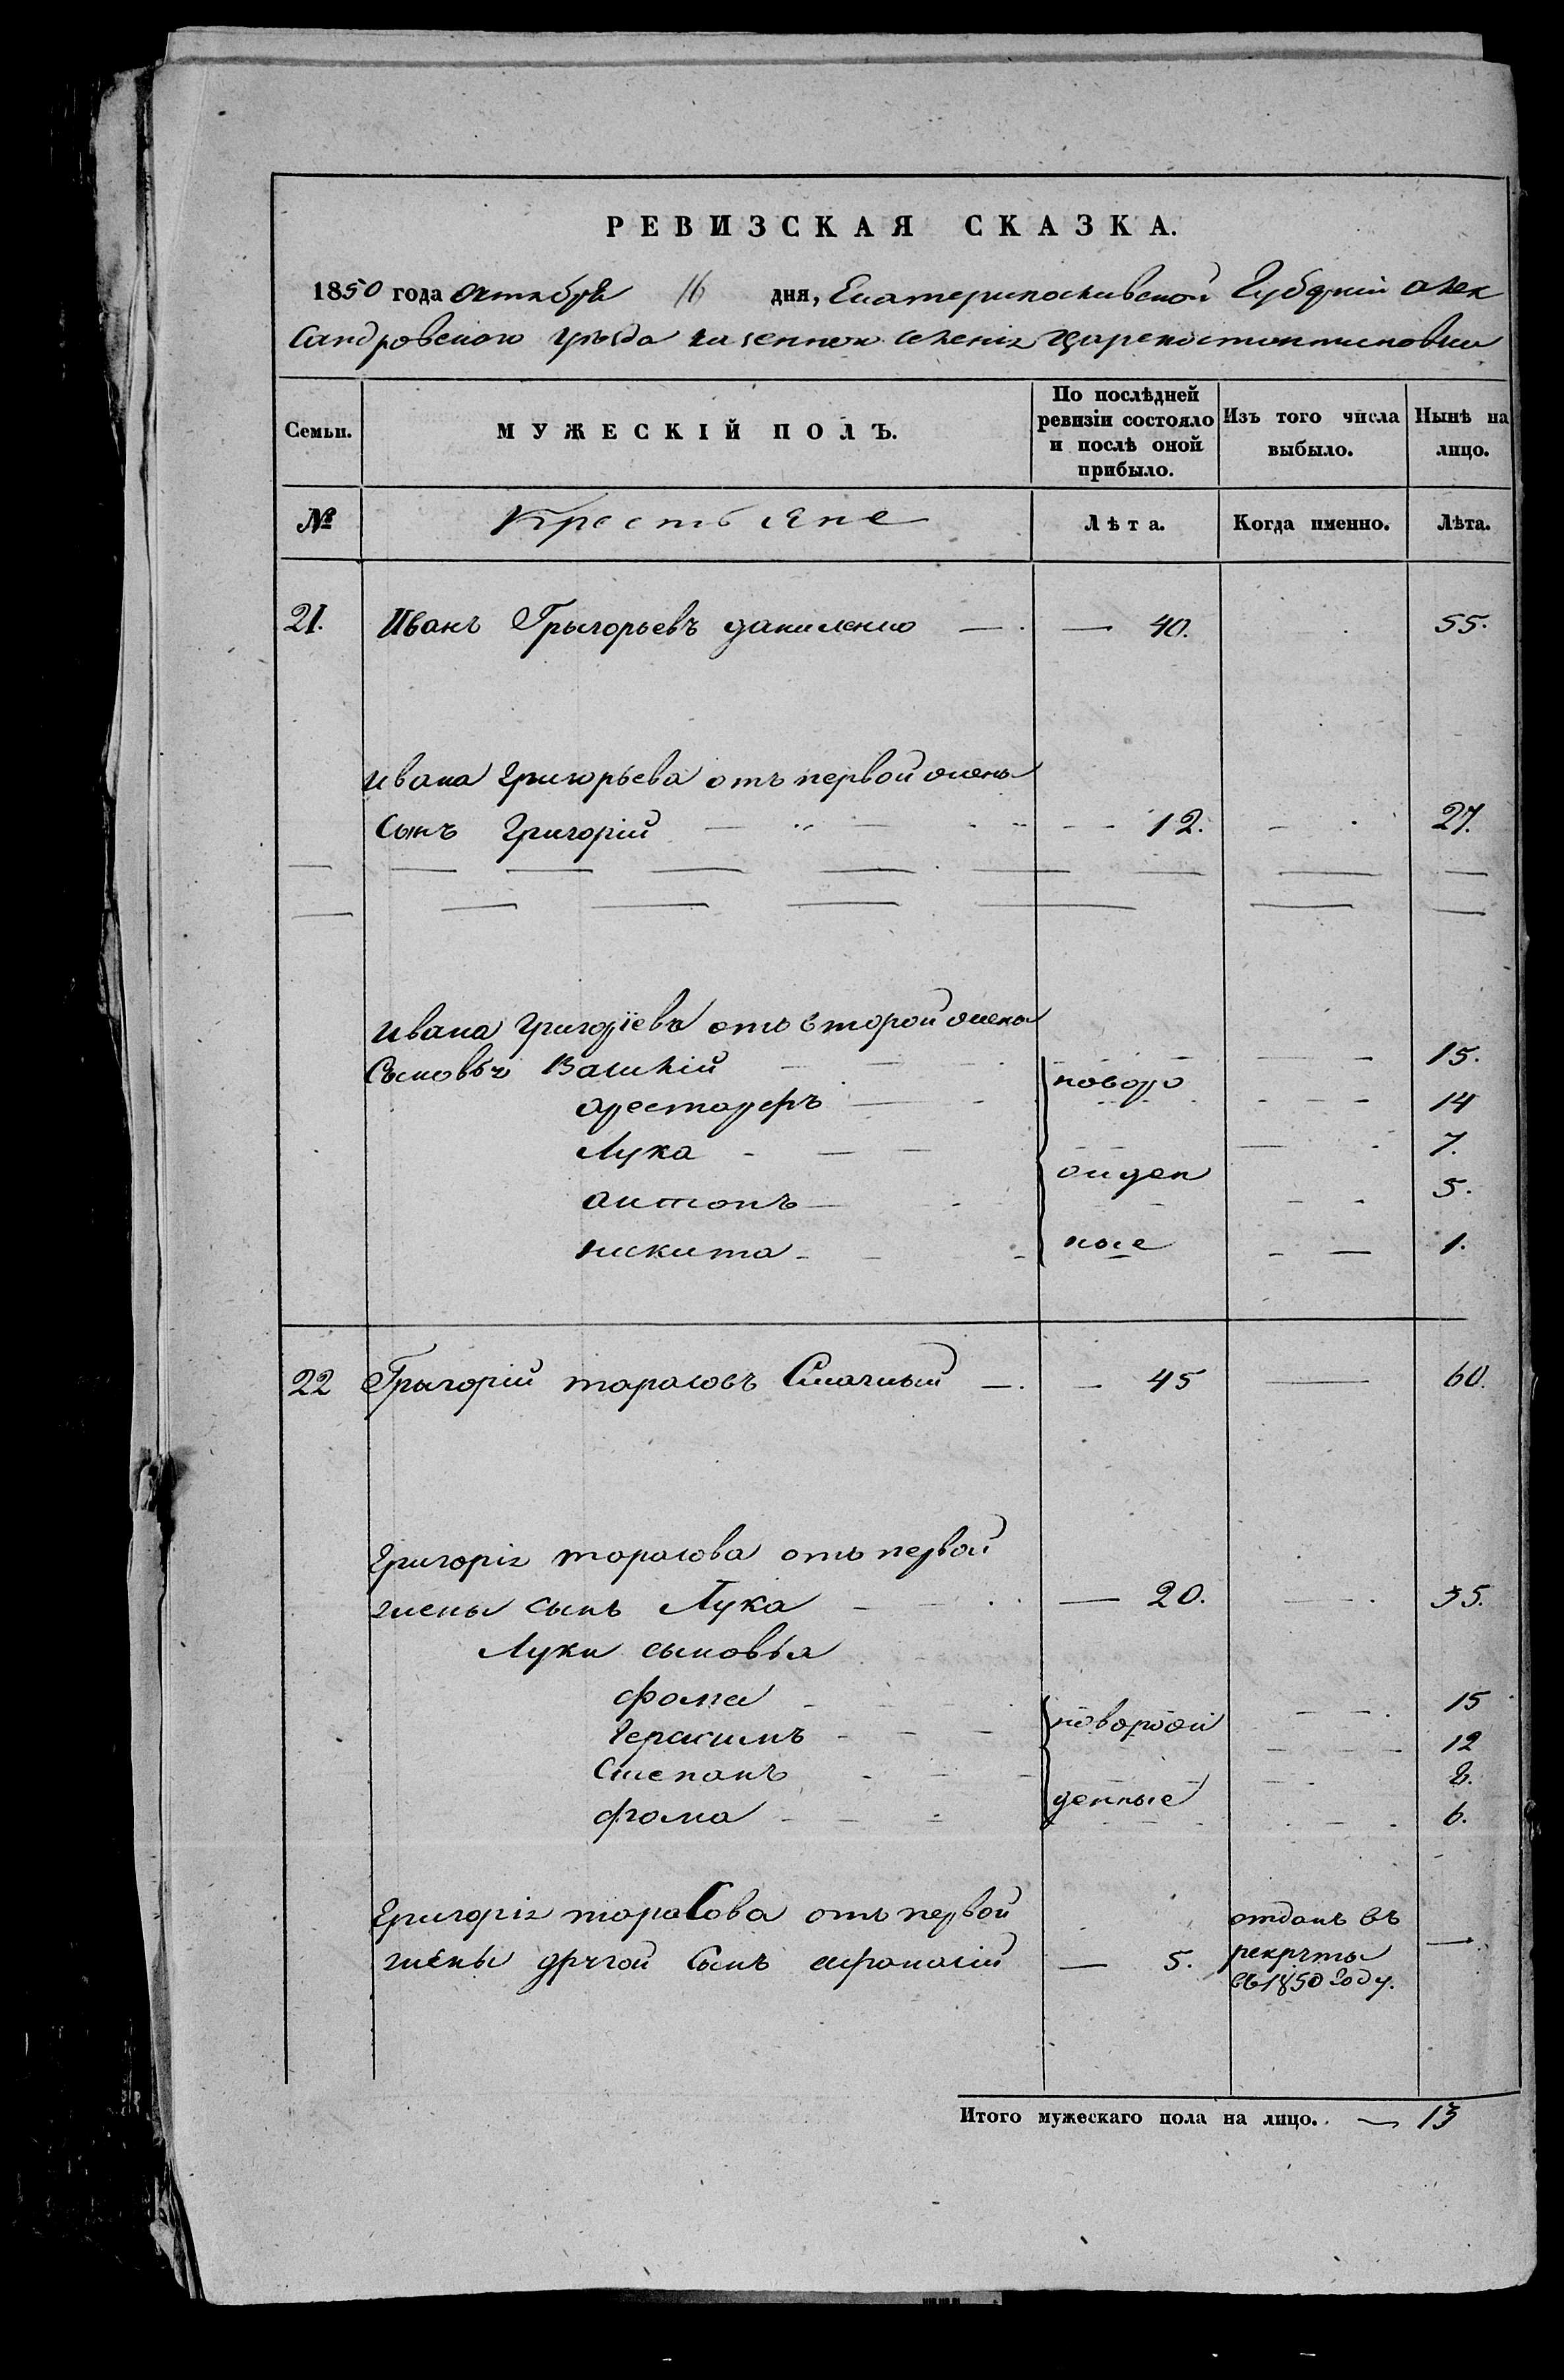 РЕВИЗСКАЯ СКАЗКА.
1850 года октября 16 дня, Екатеринославской Губерніи Алек
сандровского уѣзда казенном селенія Цареконстантиновки
Семьи.
МУЖЕСКІЙ ПОЛЪ.
По послѣдней ревизіи состояло и послѣ оной прибыло.
Изъ того числа выбыло.
Нынѣ на лицо.
№ Крестьяне Лѣта. Когда именно. Лѣта.
21. Иванъ Грыгорьевъ даниленко — 40. 55.
Ивана Григорьева отъ первой жены
Сынъ Григорій 12. 27.
Ивана Григоріева отъ второй жены
Сыновья Василій новоро 15.
14
Лука 7.
ожден
антонъ 5.
никита ные 1.
22 Грыгорій тарасовъ — 45 60.
Григорія тарасова отъ первой
жены сынъ Лука — 20. 35.
Луки сыновья
фома 15
новорож
Герасимъ 12
Степанъ 8.
денные
фома 6.
Григорія тараСова отъ первой
отданъ въ
жены другой Сынъ афанасій — 5. рекруты —
въ 1850 году.
Итого мужескаго пола на лицо. — 13